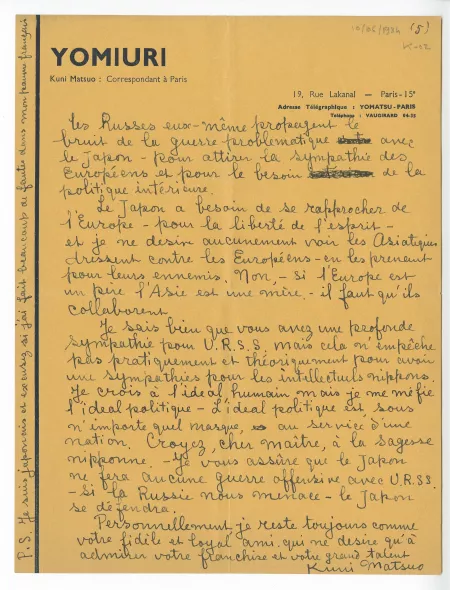 10/05/1934 (5)
YOMIURI
Kuni Matsuo : Correspondant à Paris
19, Rue Lakanal — Paris-15e
Adresse Télégraphique : YOMATSU-PARIS
Téléphone : VAUGIRARD 04-52
Les Russes eux-même propagent le
bruit de la guerre problematique avec
le Japon - pour attirer la sympathie des
Européens et pour le besoin de la
politique intérieure.
Le Japon a besoin de se rapprocher de
l'Europe - pour la liberté de l'esprit -
et je ne desire aucunement voir les Asiatiques
dressent contre les Européens - en les prenant
pour leurs ennemis. Non, - si l'Europe est
un père l'Asie est une mère - il faut qu'ils
collaborent.
Je sais bien que vous avez une profonde
sympathie pour U.R.S.S. mais cela n'empêche
pas pratiquement et théoriquement pour avoir
une sympathies pour les intellectuels nippons.
Je crois à l'ideal humain mais je me méfie
l'ideal politique - L'ideal politique est sous
n'importe quel masque, au service d'une
nation. Croyez, cher maitre, à la sagesse
nipponne. - Je vous assûre que le Japon
ne fera aucune guerre offensive avec U.R.S.S.
- si la Russie nous menace - le Japon
se défendra.
Personnellement je reste toujours comme
votre fidèle et loyal ami, qui ne desire qu'à
admirer votre franchise et votre grand talent
Kuni Matsuo
P.S. Je suis japonais et excusez si j'ai fait beaucoup de fautes dans mon pauvre français